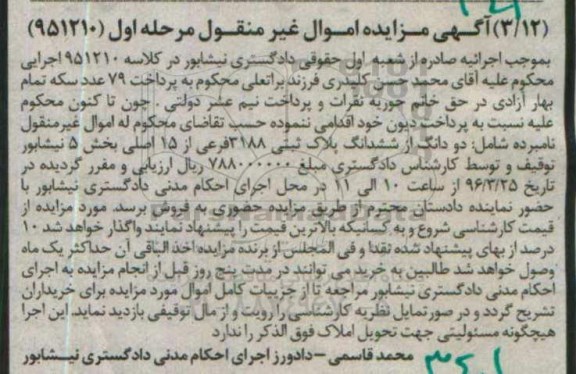 (۳/۱۲) آگهی مزایده اموال غیر منقول مرحله اول (۹۵۱۲۱۰)
بموجب اجرائیه صادره از شعبه اول حقوقی دادگستری نیشابور در کلاسه ۹۵۱۲۱۰ اجرایی
محکوم علیه آقای محمد حسن کلیدری فرزند براتعلی محکوم به پرداخت ۷۹ عدد سکه تمام
بهار آزادی در حق خانم حوریه نقرات و پرداخت نیم عشر دولتی . چون تا کنون محکوم
علیه نسبت به پرداخت دیون خود اقدامی ننموده حسب تقاضای محکوم له اموال غیرمنقول
نامبرده شامل: دو دانگ از ششدانگ پلاک ثبتی ۳۱۸۸فرعی از ۱۵ اصلی بخش ۵ نیشابور
توقیف و توسط کارشناس دادگستری مبلغ ۷۸۸۰۰۰۰۰۰ ریال ارزیابی و مقرر گردیده در
تاریخ ۹۶/۳/۲۵ از ساعت ۱۰ الی ۱۱ در محل اجرای احکام مدنی دادگستری نیشابور با
حضور نماینده دادستان محترم از طریق مزایده حضوری به فروش برسد. مورد مزایده از
قیمت کارشناسی شروع و به کسانیکه بالاترین قیمت را پیشنهاد نمایند واگذار خواهد شد ۱۰
درصد از بهای پیشنهاد شده نقدا و فی المجلس از برنده مزایده اخذ الباقی آن حداکثر یک ماه
وصول خواهد شد طالبین به خرید می توانند در مدت پنج روز قبل از انجام مزایده به اجرای
احکام مدنی دادگستری نیشابور مراجعه تا از جزییات کامل اموال مورد مزایده برای خریداران
تشریح گردد و در صورتمایل نظریه کارشناسی را رویت و از مال توقیفی بازدید نماید. این اجرا
هیچگونه مسئولیتی جهت تحویل املاک فوق الذکر را ندارد
محمد قاسمی - دادورز اجرای احکام مدنی دادگستری نیشابور